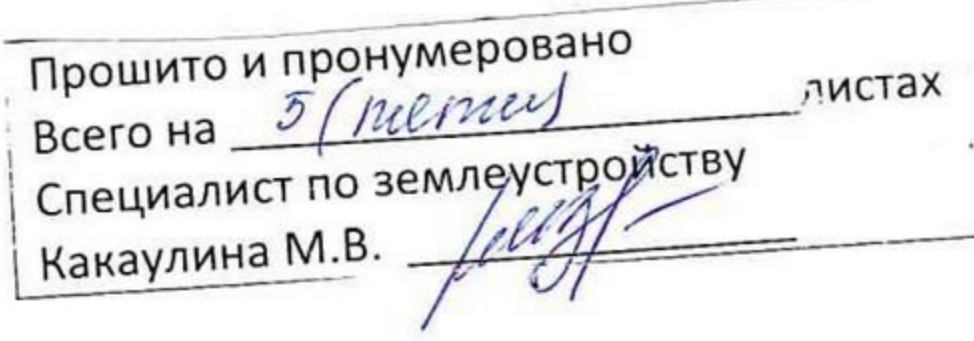 Прошито и пронумеровано
Всего на 5 (пяти) листах
Специалист по землеустройству
Какаулина М.В.